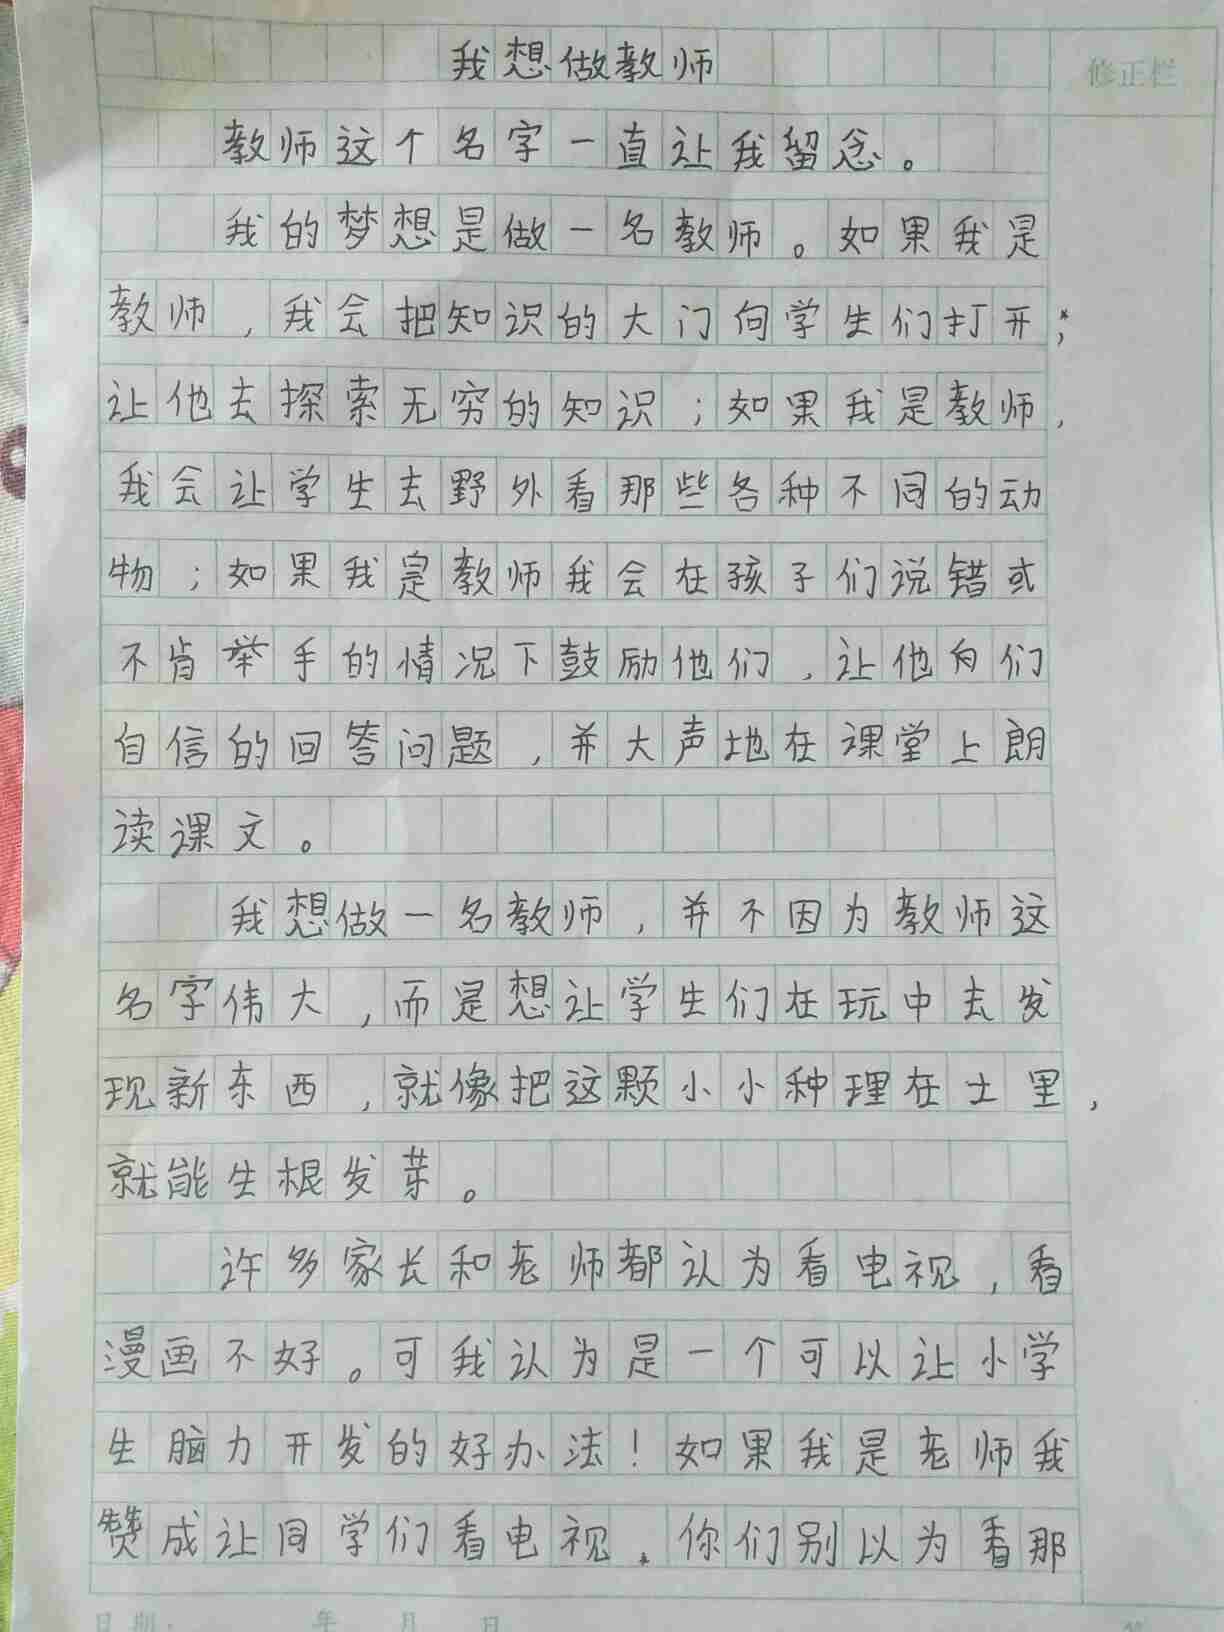 我想做教师
修正栏
教师这个名字一直让我留念。
我的梦想是做一名教师。如果我是
教师，我会把知识的大门向学生们打开，
让他去探索无穷的知识；如果我是教师，
我会让学生去野外看那些各种不同的动
物；如果我是教师我会在孩子们说错或
不肯举手的情况下鼓励他们，让他向们
自信的回答问题，并大声地在课堂上朗
读课文。
我想做一名教师，并不因为教师这
名字伟大，而是想让学生们在玩中去发
现新东西，就像把这颗小小种理在土里，
就能生根发芽。
许多家长和老师都认为看电视，看
漫画不好。可我认为是一个可以让小学
生脑力开发的好办法！如果我是老师我
赞成让同学们看电视．你们别以为看那
日期： 年 月 日